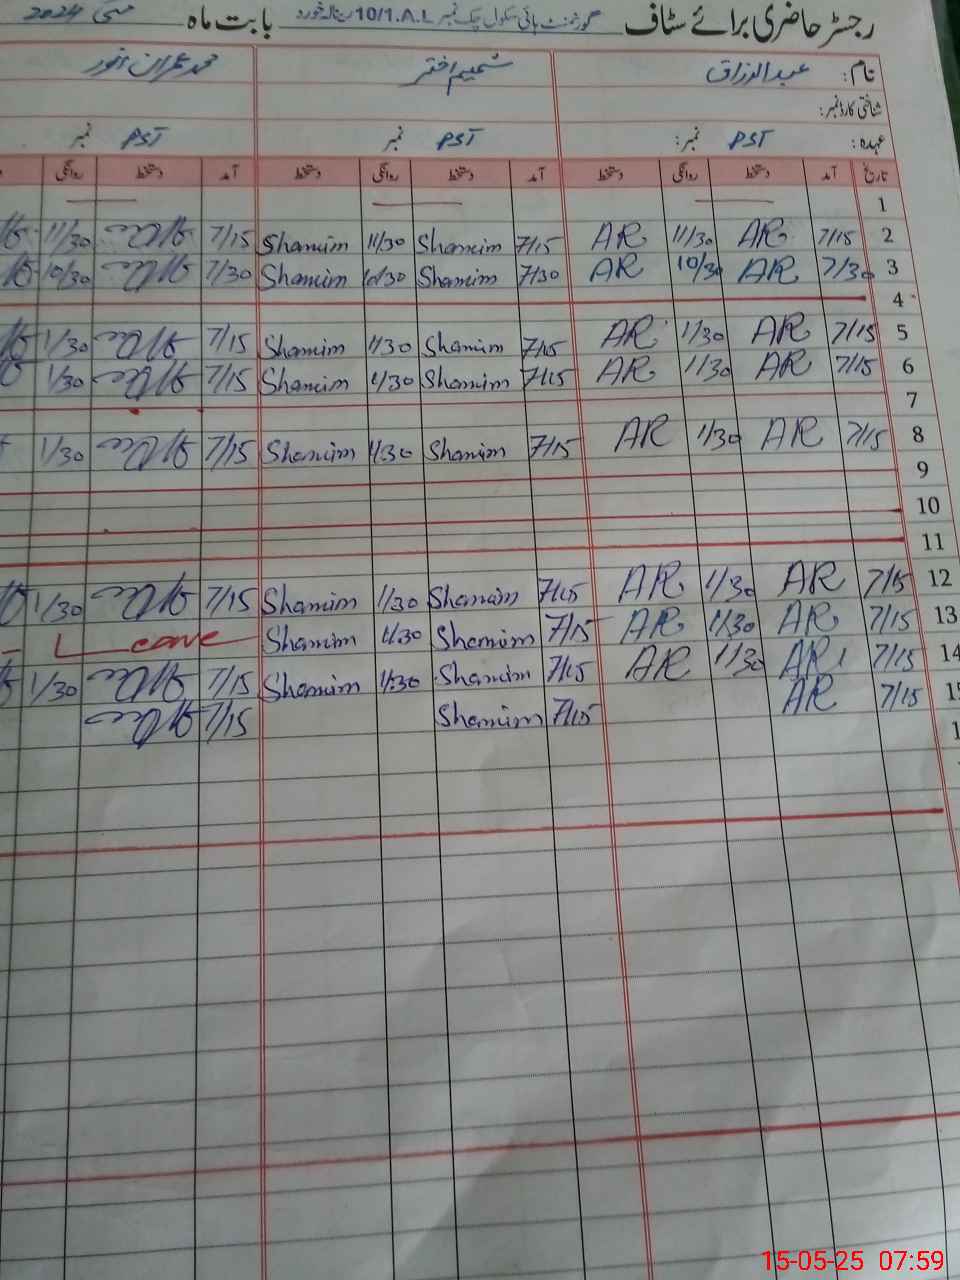 رجسٹر حاضری برائے سٹاف گورنمنٹ ہائی سکول چک نمبر 10/1.A.L رینالہ خورد بابت ماہ مئی 2024
نام: عبدالرزاق شمیم اختر محمد عمران انور
شناختی کارڈ نمبر:
عہدہ: PST نمبر: PST نمبر PST نمبر
تاریخ آمد دستخط روانگی دستخط آمد دستخط روانگی دستخط آمد دستخط روانگی
1
2 7/15 AR 11/30 AR 7/15 Shamim 11/30 Shamim 7/15 11/30
3 7/30 AR 10/30 AR 7/30 Shamim 10/30 Shamim 7/30 10/30
4
5 7/15 AR 1/30 AR 7/15 Shamim 1/30 Shamim 7/15 1/30
6 7/15 AR 1/30 AR 7/15 Shamim 1/30 Shamim 7/15 1/30
7
8 7/15 AR 1/30 AR 7/15 Shamim 1/30 Shamim 7/15 1/30
9
10
11
12 7/15 AR 1/30 AR 7/15 Shamim 1/30 Shamim 7/15 1/30
13 7/15 AR 1/30 AR 7/15 Shamim 1/30 Shamim Leave
14 7/15 AR 1/30 AR 7/15 Shamim 1/30 Shamim 7/15 1/30
7/15 AR 7/15 Shamim 7/15
15-05-25 07:59